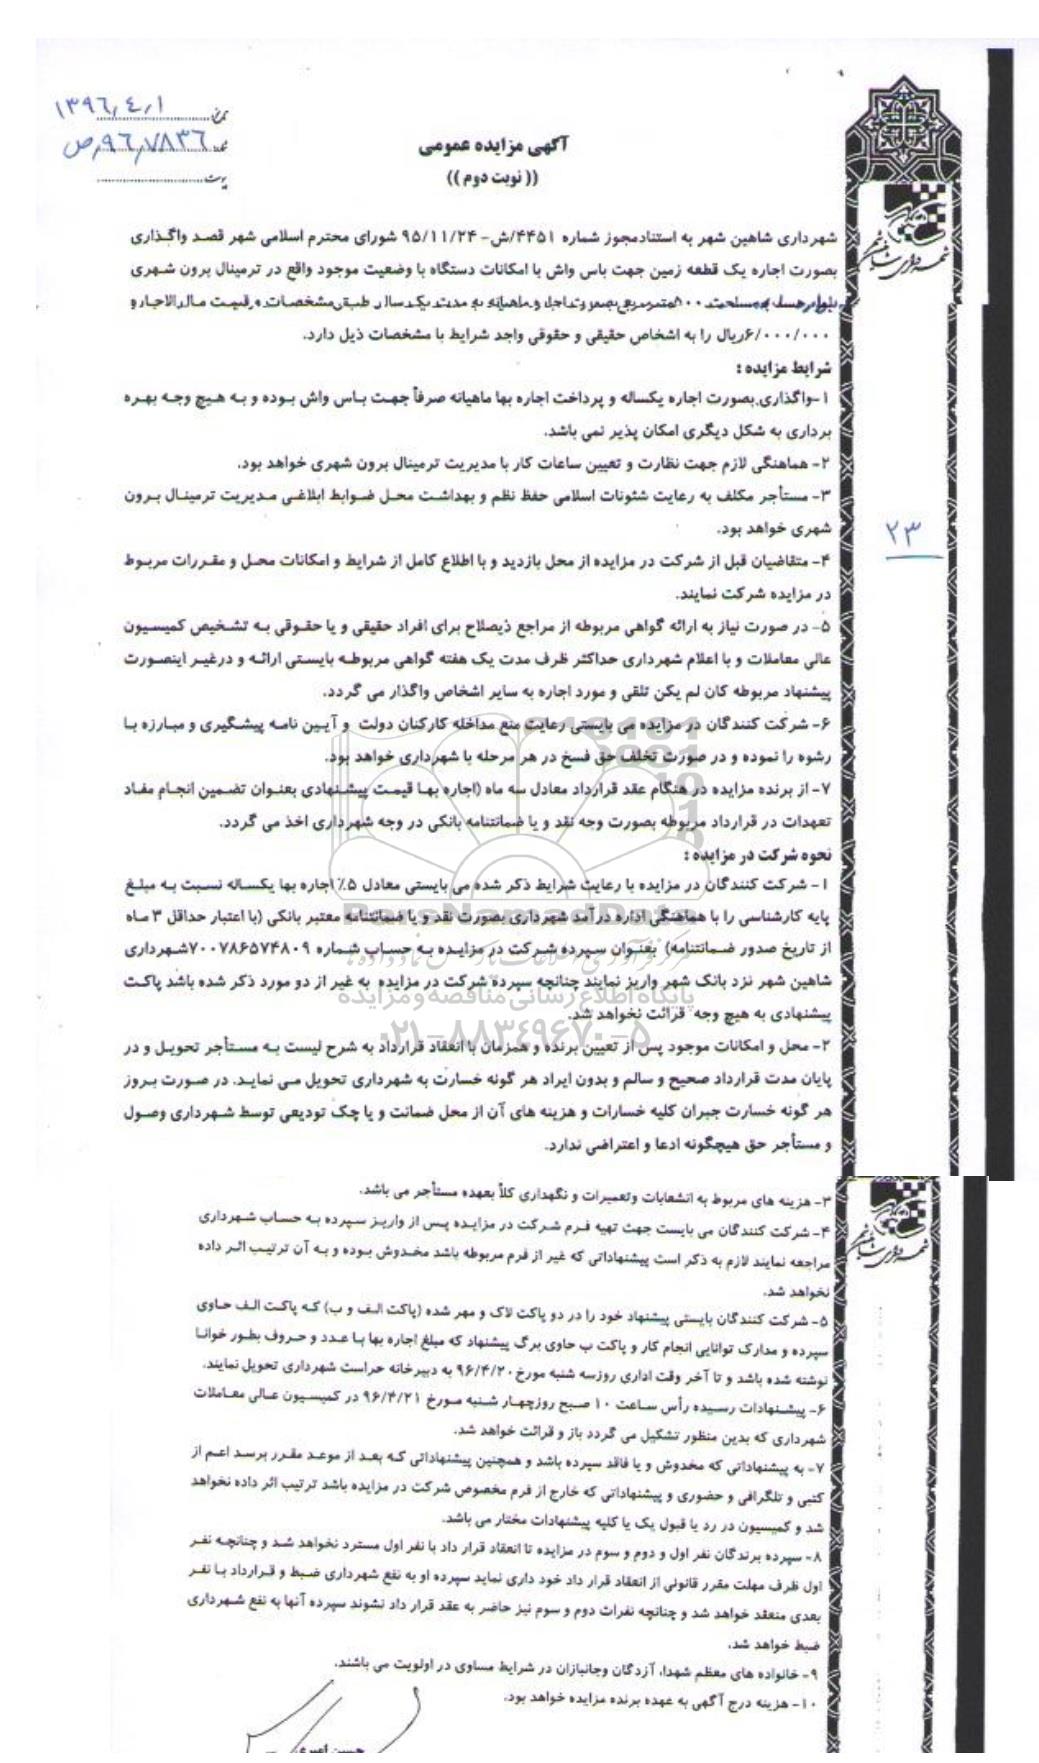 ۱۳۹۶,٤,۱
۹٦,۷۸۳٦,ص
آگهی مزایده عمومی
(( نوبت دوم ))
شهرداری شاهین شهر به استنادمجوز شماره ۴۴۵۱/ش- ۹۵/۱۱/۲۴ شورای محترم اسلامی شهر قصد واگذاری
بصورت اجاره یک قطعه زمین جهت باس واش با امکانات دستگاه با وضعیت موجود واقع در ترمینال برون شهری
بمدت یکسال طبق مشخصات
۶/۰۰۰/۰۰۰ریال را به اشخاص حقیقی و حقوقی واجد شرایط با مشخصات ذیل دارد.
شرایط مزایده :
۱-واگذاری بصورت اجاره یکساله و پرداخت اجاره بها ماهیانه صرفاً جهت باس واش بوده و به هیچ وجه بهره
برداری به شکل دیگری امکان پذیر نمی باشد.
۲- هماهنگی لازم جهت نظارت و تعیین ساعات کار با مدیریت ترمینال برون شهری خواهد بود.
۳- مستأجر مکلف به رعایت شئونات اسلامی حفظ نظم و بهداشت محل ضوابط ابلاغی مدیریت ترمینال برون
شهری خواهد بود.
۲۳
۴- متقاضیان قبل از شرکت در مزایده از محل بازدید و با اطلاع کامل از شرایط و امکانات محل و مقررات مربوط
در مزایده شرکت نمایند.
۵- در صورت نیاز به ارائه گواهی مربوطه از مراجع ذیصلاح برای افراد حقیقی و یا حقوقی به تشخیص کمیسیون
عالی معاملات و با اعلام شهرداری حداکثر ظرف مدت یک هفته گواهی مربوطه بایستی ارائه و درغیر اینصورت
پیشنهاد مربوطه کان لم یکن تلقی و مورد اجاره به سایر اشخاص واگذار می گردد.
۶- شرکت کنندگان در مزایده می بایستی رعایت منع مداخله کارکنان دولت و آیین نامه پیشگیری و مبارزه با
رشوه را نموده و در صورت تخلف حق فسخ در هر مرحله با شهرداری خواهد بود.
۷- از برنده مزایده در هنگام عقد قرارداد معادل سه ماه (اجاره بها قیمت پیشنهادی بعنوان تضمین انجام مفاد
تعهدات در قرارداد مربوطه بصورت وجه نقد و یا ضمانتنامه بانکی در وجه شهرداری اخذ می گردد.
نحوه شرکت در مزایده :
۱- شرکت کنندگان در مزایده با رعایت شرایط ذکر شده می بایستی معادل ۵٪ اجاره بها یکساله نسبت به مبلغ
پایه کارشناسی را با هماهنگی اداره درآمد شهرداری بصورت نقد و یا ضمانتنامه معتبر بانکی (با اعتبار حداقل ۳ ماه
ParsNamadData
از تاریخ صدور ضمانتنامه) بعنوان سپرده شرکت در مزایده به حساب شماره ۷۰۰۷۸۶۵۷۴۸۰۹شهرداری
شاهین شهر نزد بانک شهر واریز نمایند چنانچه سپرده شرکت در مزایده به غیر از دو مورد ذکر شده باشد پاکت
پایگاه اطلاع رسانی مناقصه و مزایده
پیشنهادی به هیچ وجه قرائت نخواهد شد.
۰۲۱-۸۸۳۴۹۶۷۰-۵
۲- محل و امکانات موجود پس از تعیین برنده و همزمان با انعقاد قرارداد به شرح لیست به مستأجر تحویل و در
پایان مدت قرارداد صحیح و سالم و بدون ایراد هر گونه خسارت به شهرداری تحویل می نماید. در صورت بروز
هر گونه خسارت جبران کلیه خسارات و هزینه های آن از محل ضمانت و یا چک تودیعی توسط شهرداری وصول
و مستأجر حق هیچگونه ادعا و اعتراضی ندارد.
۳- هزینه های مربوط به انشعابات وتعمیرات و نگهداری کلاً بعهده مستأجر می باشد.
۴- شرکت کنندگان می بایست جهت تهیه فرم شرکت در مزایده پس از واریز سپرده به حساب شهرداری
مراجعه نمایند لازم به ذکر است پیشنهاداتی که غیر از فرم مربوطه باشد مخدوش بوده و به آن ترتیب اثر داده
نخواهد شد.
۵- شرکت کنندگان بایستی پیشنهاد خود را در دو پاکت لاک و مهر شده (پاکت الف و ب) که پاکت الف حاوی
سپرده و مدارک توانایی انجام کار و پاکت ب حاوی برگ پیشنهاد که مبلغ اجاره بها با عدد و حروف بطور خوانا
نوشته شده باشد و تا آخر وقت اداری روزسه شنبه مورخ ۹۶/۴/۲۰ به دبیرخانه حراست شهرداری تحویل نمایند.
۶- پیشنهادات رسیده رأس ساعت ۱۰ صبح روزچهار شنبه مورخ ۹۶/۴/۲۱ در کمیسیون عالی معاملات
شهرداری که بدین منظور تشکیل می گردد باز و قرائت خواهد شد.
۷- به پیشنهاداتی که مخدوش و یا فاقد سپرده باشد و همچنین پیشنهاداتی که بعد از موعد مقرر برسد اعم از
کتبی و تلگرافی و حضوری و پیشنهاداتی که خارج از فرم مخصوص شرکت در مزایده باشد ترتیب اثر داده نخواهد
شد و کمیسیون در رد یا قبول یک یا کلیه پیشنهادات مختار می باشد.
۸- سپرده برندگان نفر اول و دوم و سوم در مزایده تا انعقاد قرار داد با نفر اول مسترد نخواهد شد و چنانچه نفر
اول ظرف مهلت مقرر قانونی از انعقاد قرار داد خود داری نماید سپرده او به نفع شهرداری ضبط و قرارداد با نفر
بعدی منعقد خواهد شد و چنانچه نفرات دوم و سوم نیز حاضر به عقد قرار داد نشوند سپرده آنها به نفع شهرداری
ضبط خواهد شد.
۹- خانواده های معظم شهدا، آزدگان وجانبازان در شرایط مساوی در اولویت می باشند.
۱۰- هزینه درج آگهی به عهده برنده مزایده خواهد بود.
حسین امیری